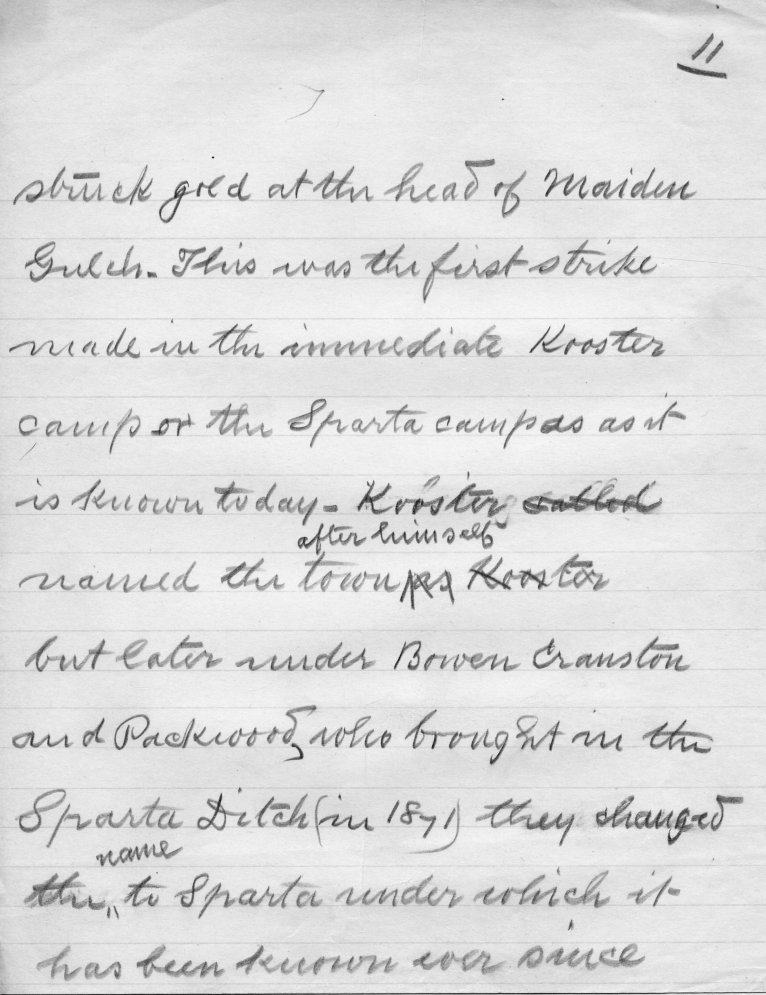 11
struck gold at the head of Maiden
Gulch. This was the first strike
made in the immediate Kooster
camp or the Sparta camp as as it
is known today - Kooster called
after himself
named the town as Kooster
but later under Bowen Cranston
and Packwood, who brought in the
Sparta Ditch (in 1871) they changed
name
the to Sparta under which it
has been known ever since